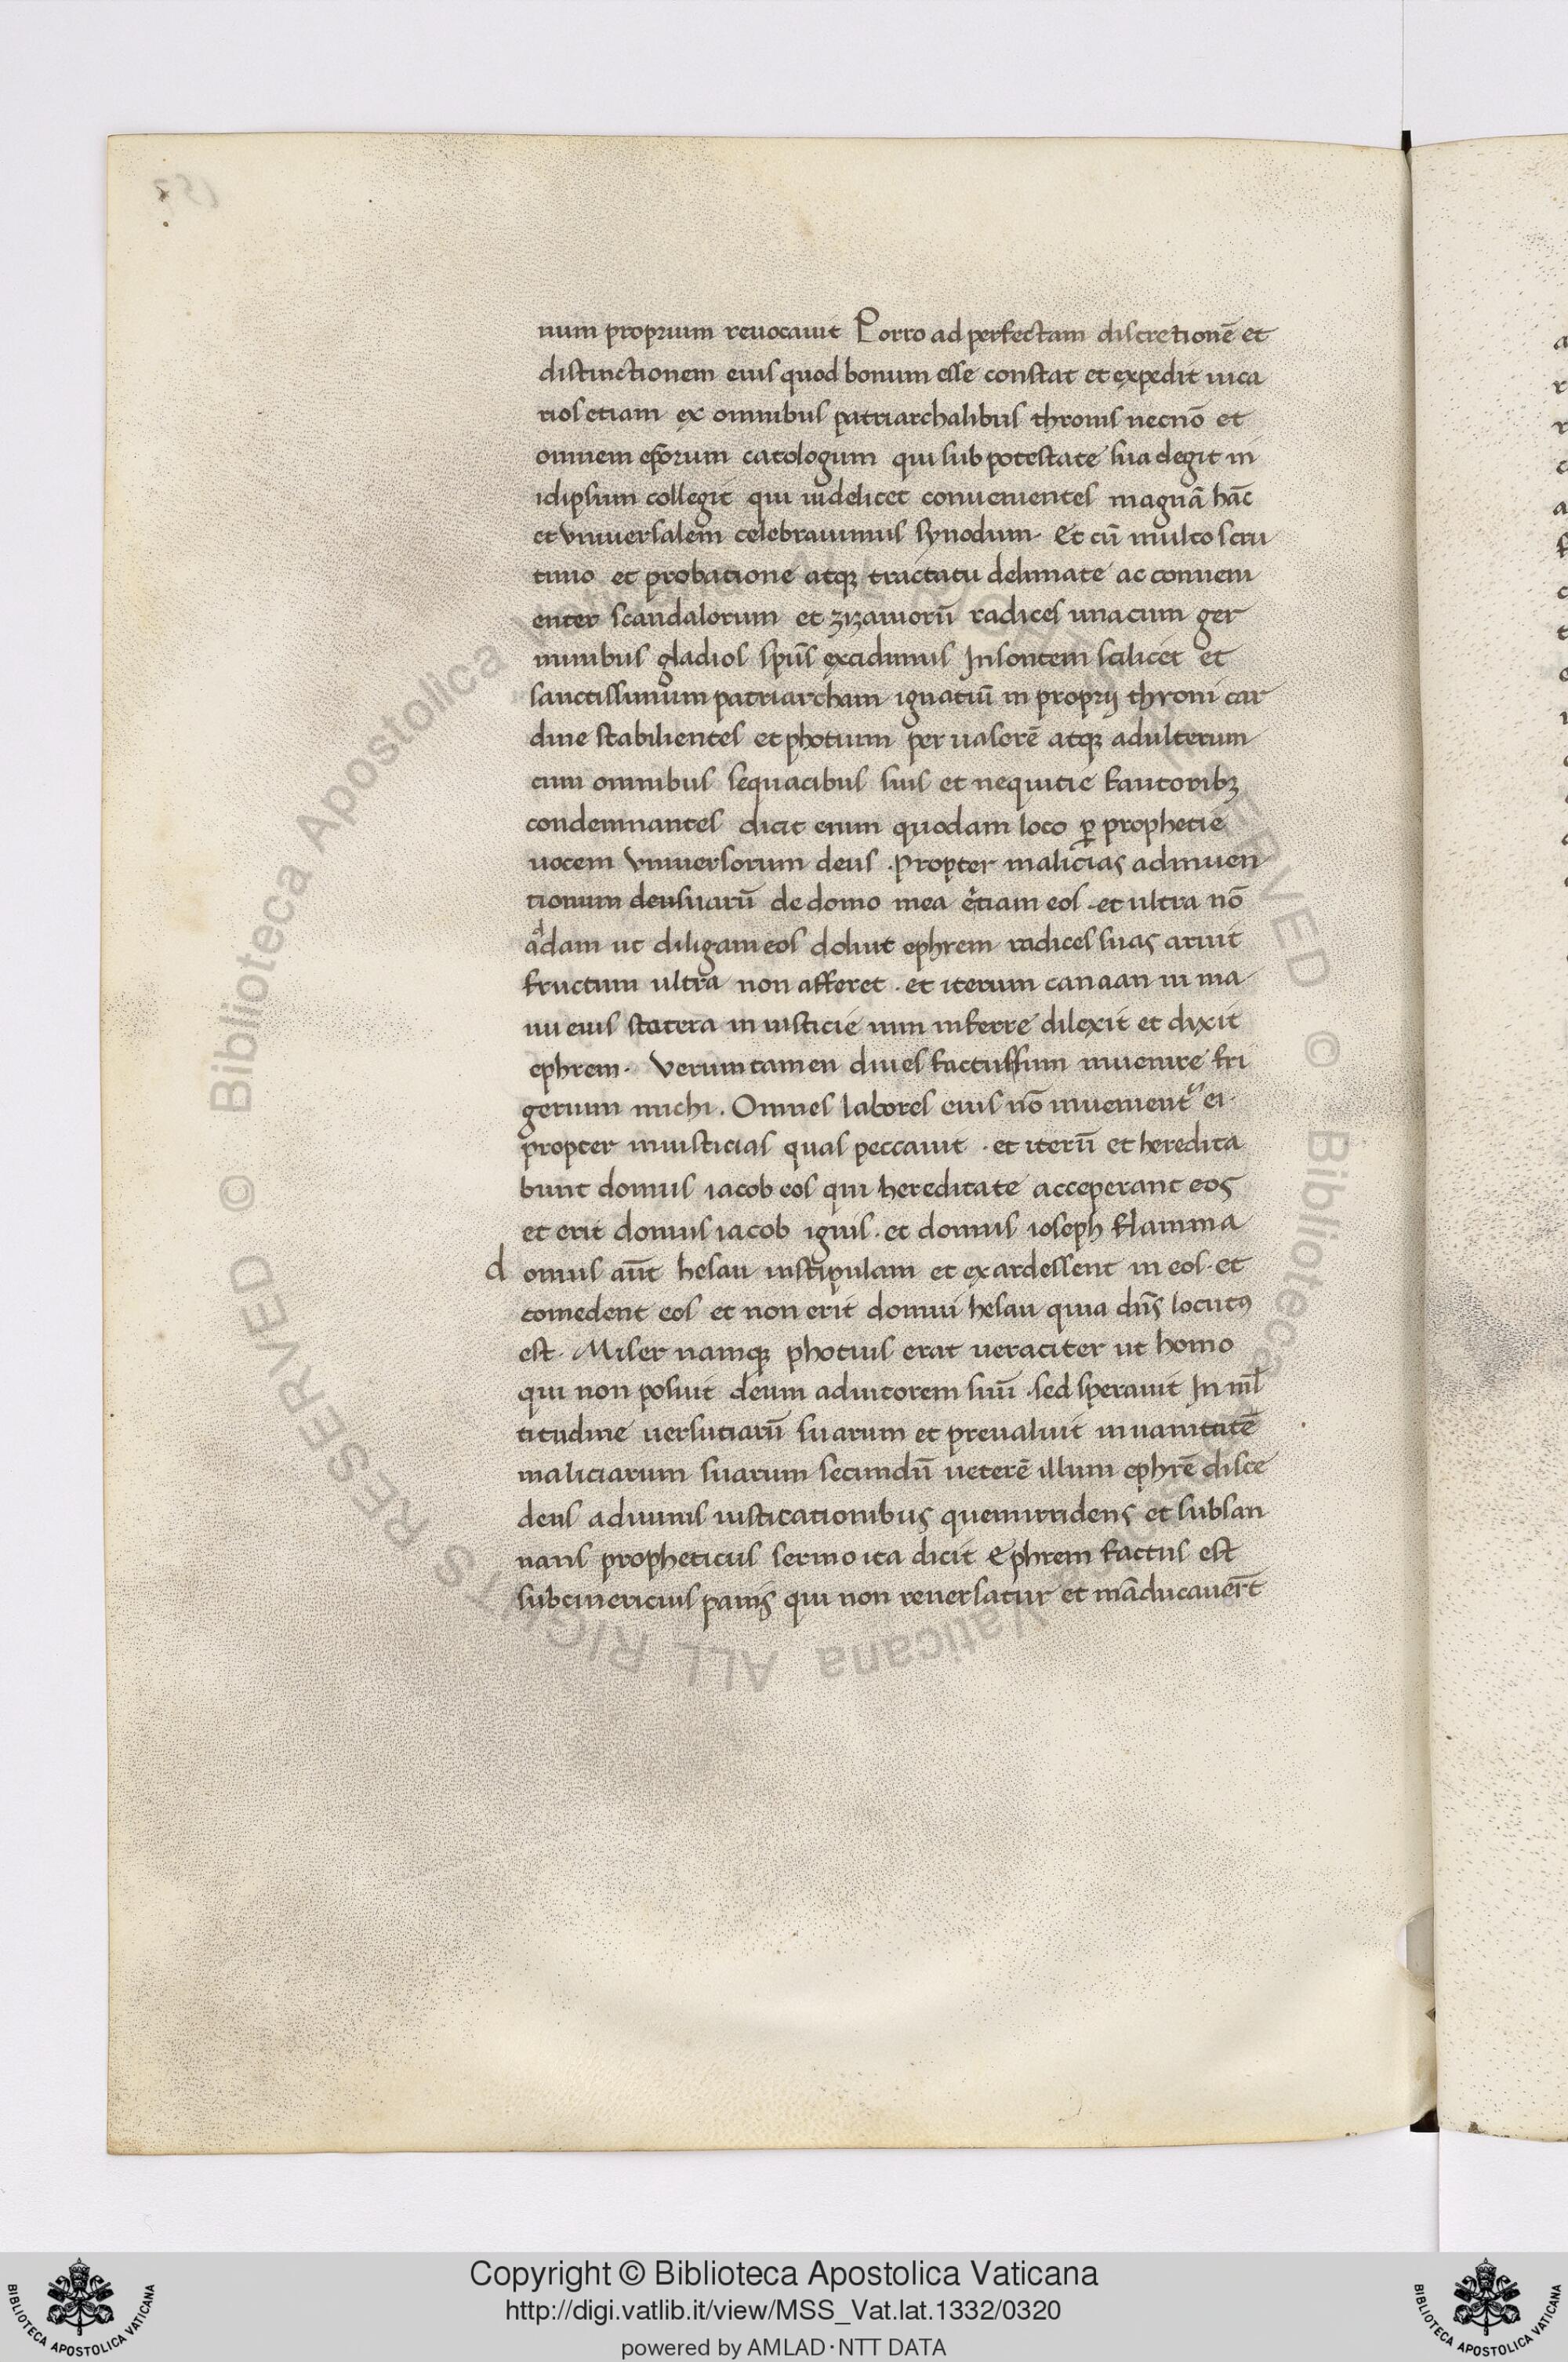 num proprium reuocauit Porro ad perfectam discretionē et
distinctionem eius quod bonum esse constat et expedit uica
rios etiam ex omnibus patriarchalibus thronis necnō et
omnem ep̄orum catologum qui sub potestate sua degit in
idipsum collegit qui uidelicet conuenientes magnā hāc
et vniuersalem celebrauimus synodum. Et cū multo scru
tinio et probatione atq; tractatu delimate ac conueni
enter scandalorum et zizaniorū radices una cum ger
minibus gladios sp̄us excidimus Insontem scilicet et
sanctissimum patriarcham ignatiū in proprij throni car
dine stabilientes et photium peruasorē atq; adulterum
cum omnibus sequacibus suis et nequitie fautorib;
condemnantes dicit enim quodam loco ꝑ prophetie
uocem vniuersorum deus . propter malicias adinuen
tionum deusuarū de domo mea etiam eos . et ultra nō
adam ut diligam eos doluit ephrem radices suas aruit
fructum ultra non afferet . et iterum canaan in ma
nu eius statera iniusticie uim inferre dilexit et dixit
ephrem . verumtamen diues factussum inuenire fri
gerium michi . Omnes labores eius nō inuenient᷑ ei .
propter iniusticias quas peccauit . et iterū et heredita
bunt domus iacob eos qui hereditate acceperant eos
et erit domus iacob ignis . et domus ioseph flamma
d omus aūt hesau instipulam et exardessent in eos . et
comedent eos et non erit domui hesau quia dn̄s locutꝰ
est . Miser namq; photius erat ueraciter ut homo
qui non posuit deum adiutorem suū . sed sperauit In ml̄
titudine uersutiarū suarum et preualuit inuanitatē
maliciarum suarum secundū ueterē illum ephrē disce
dens adiuinis iustificationibus quemirridens et subsan
nans propheticus sermo ita dicit Ephrem factus est
subcinericius panis qui non reuersatur et māducauer̄t
Copyright © Biblioteca Apostolica Vaticana
http://digi.vatlib.it/view/MSS_Vat.lat.1332/0320
powered by AMLAD·NTT DATA
BIBLIOTECA APOSTOLICA VATICANA
BIBLIOTECA APOSTOLICA VATICANA
© Biblioteca Apostolica Vaticana ALL RIGHTS RESERVED
© Biblioteca Apostolica Vaticana ALL RIGHTS RESERVED